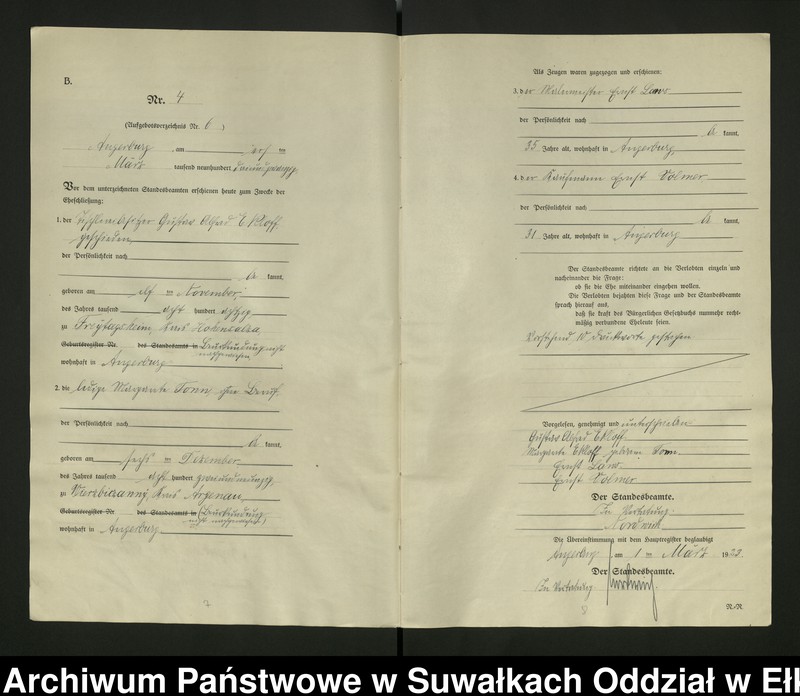 B.
Nr. 4
(Aufgebotsverzeichnis Nr. 6)
Angerburg, am
März tausend neunhundert
Vor dem unterzeichneten Standesbeamten erschienen heute zum Zwecke der
Eheschließung:
1. der Gustav Alfred Ekloff
geschieden
der Persönlichkeit nach
kannt,
geboren am elf ten November
des Jahres tausend acht hundert achtzig
zu Kreis Hohensalza
Geburtsregister Nr. des Standesamts in Beurkundung nicht
nachgewiesen
wohnhaft in Angerburg
2. die ledige Margarete Tonn, ohne Beruf
der Persönlichkeit nach
kannt,
geboren am sechs ten Dezember
des Jahres tausend acht hundert
zu Kreis Argenau
Geburtsregister Nr. des Standesamts in (Beurkundung
nicht nachgewiesen)
wohnhaft in Angerburg
7
Als Zeugen waren zugezogen und erschienen:
3. der Ernst
der Persönlichkeit nach
kannt,
35 Jahre alt, wohnhaft in Angerburg
4. der Kaufmann Ernst Volmer
der Persönlichkeit nach
kannt,
31 Jahre alt, wohnhaft in Angerburg
Der Standesbeamte richtete an die Verlobten einzeln und
nacheinander die Frage:
ob sie die Ehe miteinander eingehen wollen.
Die Verlobten bejahten diese Frage und der Standesbeamte
sprach hierauf aus,
daß sie kraft des Bürgerlichen Gesetzbuchs nunmehr recht-
mäßig verbundene Eheleute seien.
Vorstehend 10 Druckworte gestrichen
Vorgelesen, genehmigt und unterschrieben
Gustav Alfred Ekloff
Margarete Ekloff geborene Tonn
Ernst
Ernst Volmer
Der Standesbeamte.
In Vertretung
Die Übereinstimmung mit dem Hauptregister beglaubigt
Angerburg, am 1 ten März 1923
Der Standesbeamte.
In Vertretung
8
N/R
Archiwum Państwowe w Suwałkach Oddział w Eł